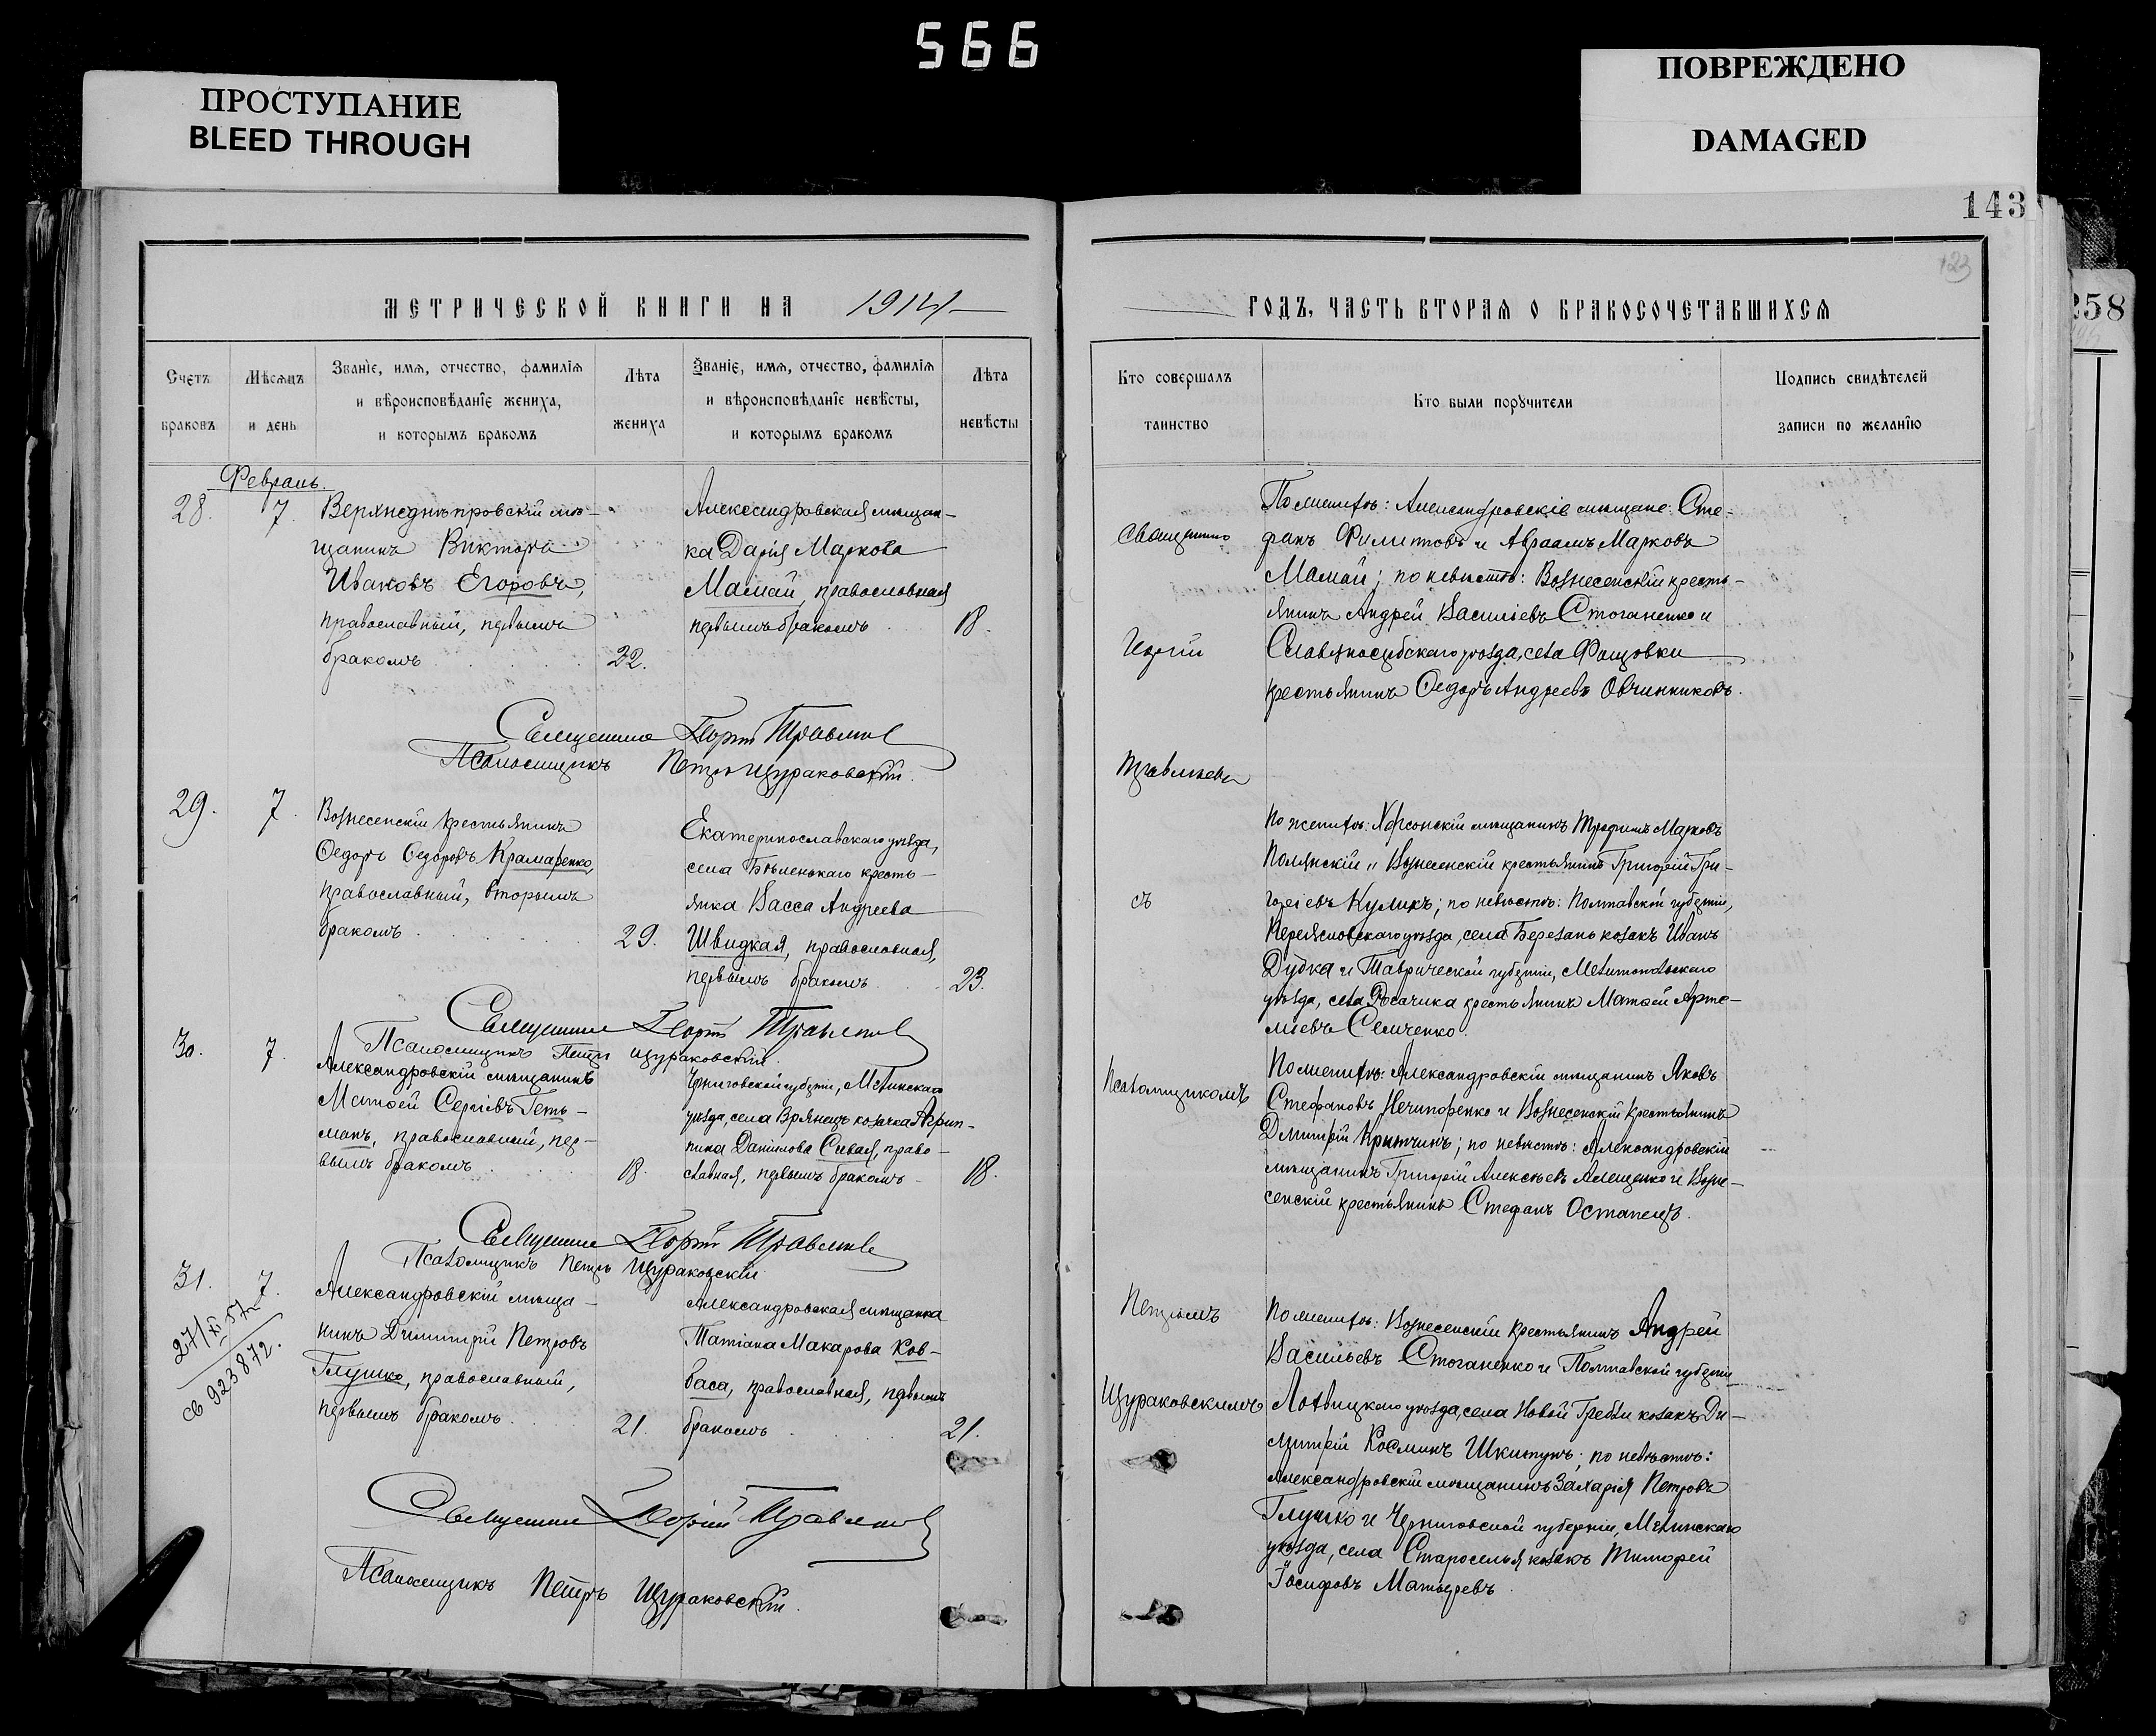 566
ПРОСТУПАНИЕ
BLEED THROUGH
ПОВРЕЖДЕНО
DAMAGED
143
123
258
МЕТРИЧЕСКОЙ КНИГИ НА 1914
Счетъ браковъ
Мѣсяцъ и день
Званіе, имя, отчество, фамилія
и вѣроисповѣданіе жениха,
и которымъ бракомъ
Лѣта жениха
Званіе, имя, отчество, фамилія
и вѣроисповѣданіе невѣсты,
и которымъ бракомъ
Лѣта невѣсты
Февраль.
28. 7.
Верхнеднѣпровскій мѣ-
щанинъ Викторъ
Ивановъ Егоровъ,
православный, первымъ
бракомъ 22.
Александровская мѣщан-
ка Дарія Маркова
Мамай, православная
первымъ бракомъ 18.
Священникъ Георгій
Псаломщикъ Петръ Щураковскій.
29. 7.
Вознесенскій крестьянинъ
Ѳедоръ Ѳедоровъ Крамаренко,
православный, вторымъ
бракомъ 29.
Екатеринославскаго уѣзда,
села Бѣленькаго кресть-
янка Васса Андреева
Швидкая, православная,
первымъ бракомъ 23.
Священникъ Георгій
Псаломщикъ Петръ Щураковскій.
30. 7.
Александровскій мѣщанинъ
Матѳей Сергіевъ Геть-
манъ, православный, пер-
вымъ бракомъ 18.
Черниговской губерніи, Мглинскаго
уѣзда, села Врянецъ козачка Агрип-
пина Данилова Сивая, право-
славная, первымъ бракомъ 18.
Священникъ Георгій
Псаломщикъ Петръ Щураковскій
31. 7.
27/XI 57 г
св 923872.
Александровскій мѣща-
нинъ Димитрій Петровъ
Глушко, православный,
первымъ бракомъ 21.
Александровская мѣщанка
Татіана Макарова Ков-
баса, православная, первымъ
бракомъ 21.
Священникъ Георгій
Псаломщикъ Петръ Щураковскій.
ГОДЪ, ЧАСТЬ ВТОРАЯ О БРАКОСОЧЕТАВШИХСЯ
Кто совершалъ таинство
Кто были поручители
Подпись свидѣтелей
записи по желанію
Священникъ
Георгій
съ
Псаломщикомъ
Петромъ
Щураковскимъ
По женихѣ: Александровскіе мѣщане: Сте-
фанъ Филипповъ и Авраамъ Марковъ
Мамай; по невѣстѣ: Вознесенскій кресть-
янинъ Андрей Васильевъ Стоганенко и
Славяносербскаго уѣзда, села Фащовки
крестьянинъ Ѳедоръ Андреевъ Овчинниковъ.
По женихѣ: Херсонскій мѣщанинъ Трофимъ Марковъ
Полянскій и Вознесенскій крестьянинъ Григорій Гри-
горіевъ Куликъ; по невѣстѣ: Полтавской губерніи,
Переяславскаго уѣзда, села Березань козакъ Иванъ
Дудка и Таврической губерніи, Мелитопольскаго
уѣзда, села крестьянинъ Матѳей Арте-
міевъ Семченко.
По женихѣ: Александровскій мѣщанинъ Яковъ
Стефановъ Нечипоренко и Вознесенскій крестьянинъ
Димитрій; по невѣстѣ: Александровскій
мѣщанинъ Григорій Алексѣевъ Алещенко и Возне-
сенскій крестьянинъ Стефанъ Остапецъ.
По женихѣ: Вознесенскій крестьянинъ Андрей
Васильевъ Стоганенко и Полтавской губерніи
Лохвицкаго уѣзда, села Новой Гребли козакъ Ди-
митрій Косминъ; по невѣстѣ:
Александровскій мѣщанинъ Захарія Петровъ
Глушко и Черниговской губерніи, Мглинскаго
уѣзда, села Староселья козакъ Тимофей
Іосифовъ